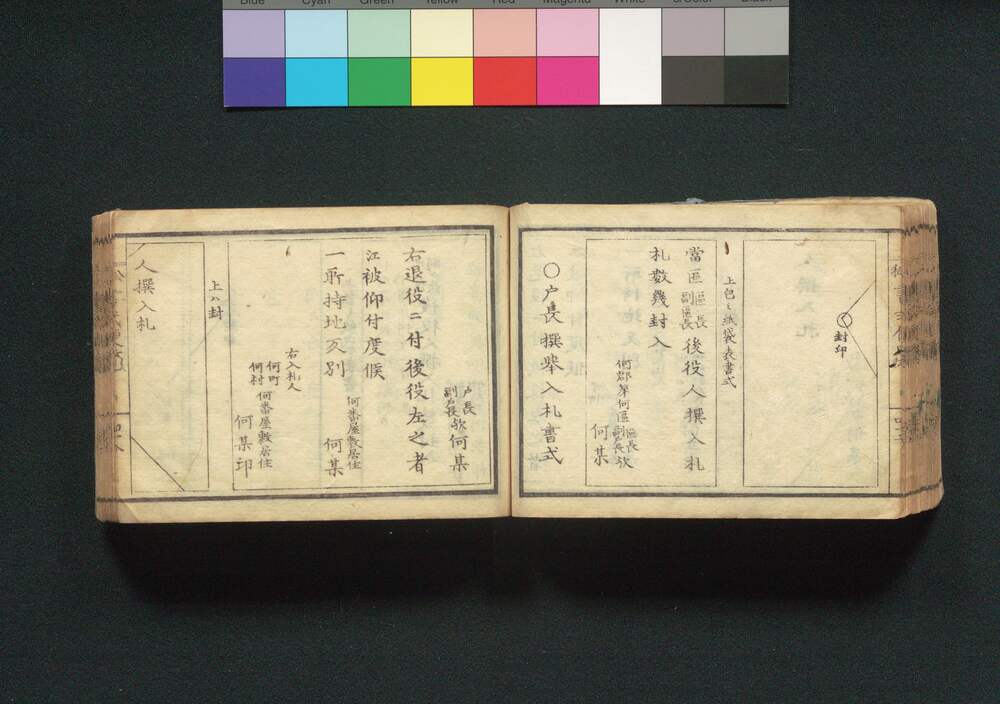 Blue Cyan Green Yellow Red Magenta White 3/Color Black
封印
上包ミ紙袋表書式
當區區長副區長後役人撰入札
札数幾封入
何郡第何區區長副區長欤
何某
〇戸長撰擧入札書式
戸長副戸長欤何某
右退役ニ付後役左之者
江被仰付度候
何番屋敷居住
何某
一所持地反別
右入札人
何町何村何番屋敷居住
何某印
上ハ封
人撰入札